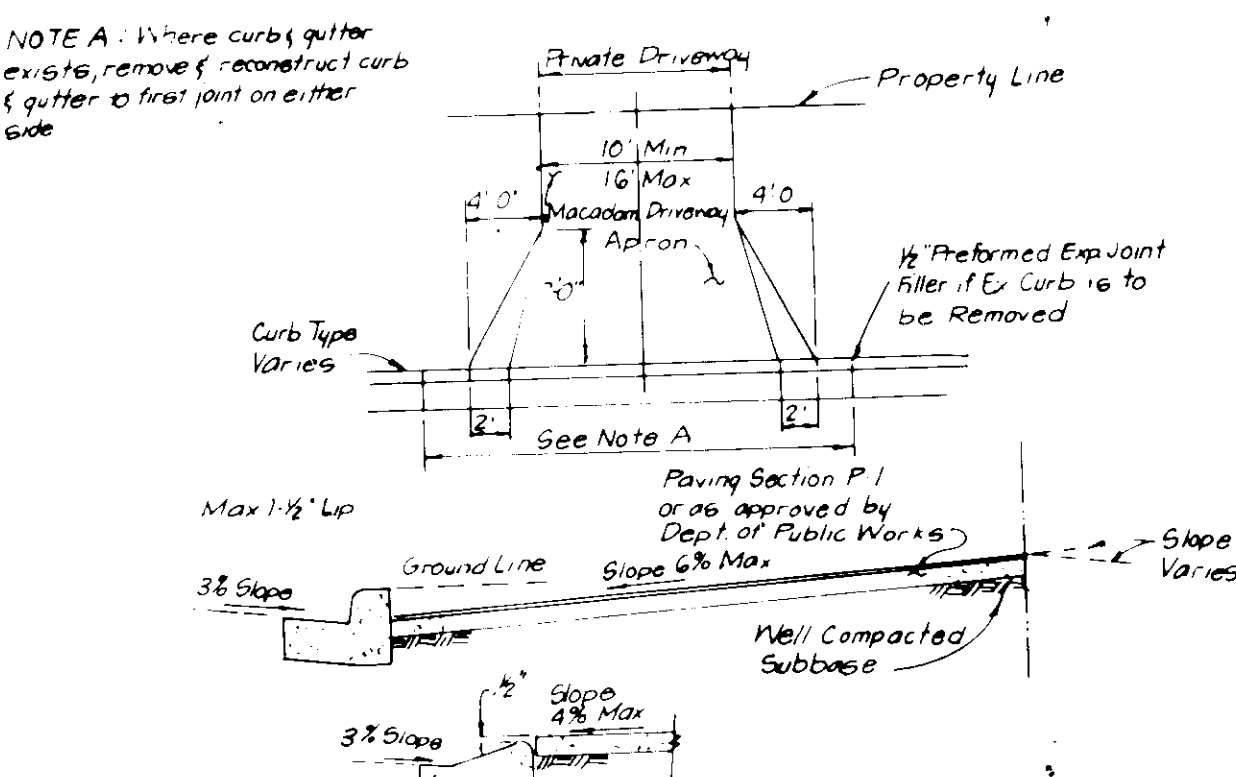 NOTE A : Where curb & gutter
exists, remove & reconstruct curb
& gutter to first joint on either
side
Private Driveway
Property Line
10' Min
16' Max
4' 0"
4' 0
Macadam Driveway
Apron
1/2" Preformed Exp. Joint
Filler if Ex Curb is to
be Removed
Curb Type
Varies
2'
2'
See Note A
Max 1-1/2" Lip
Paving Section P-1
or as approved by
Dept. of Public Works
Ground Line
Slope 6% Max
Slope
Varies
3% Slope
Well Compacted
Subbase
1/2"
Slope
4% Max
3% Slope